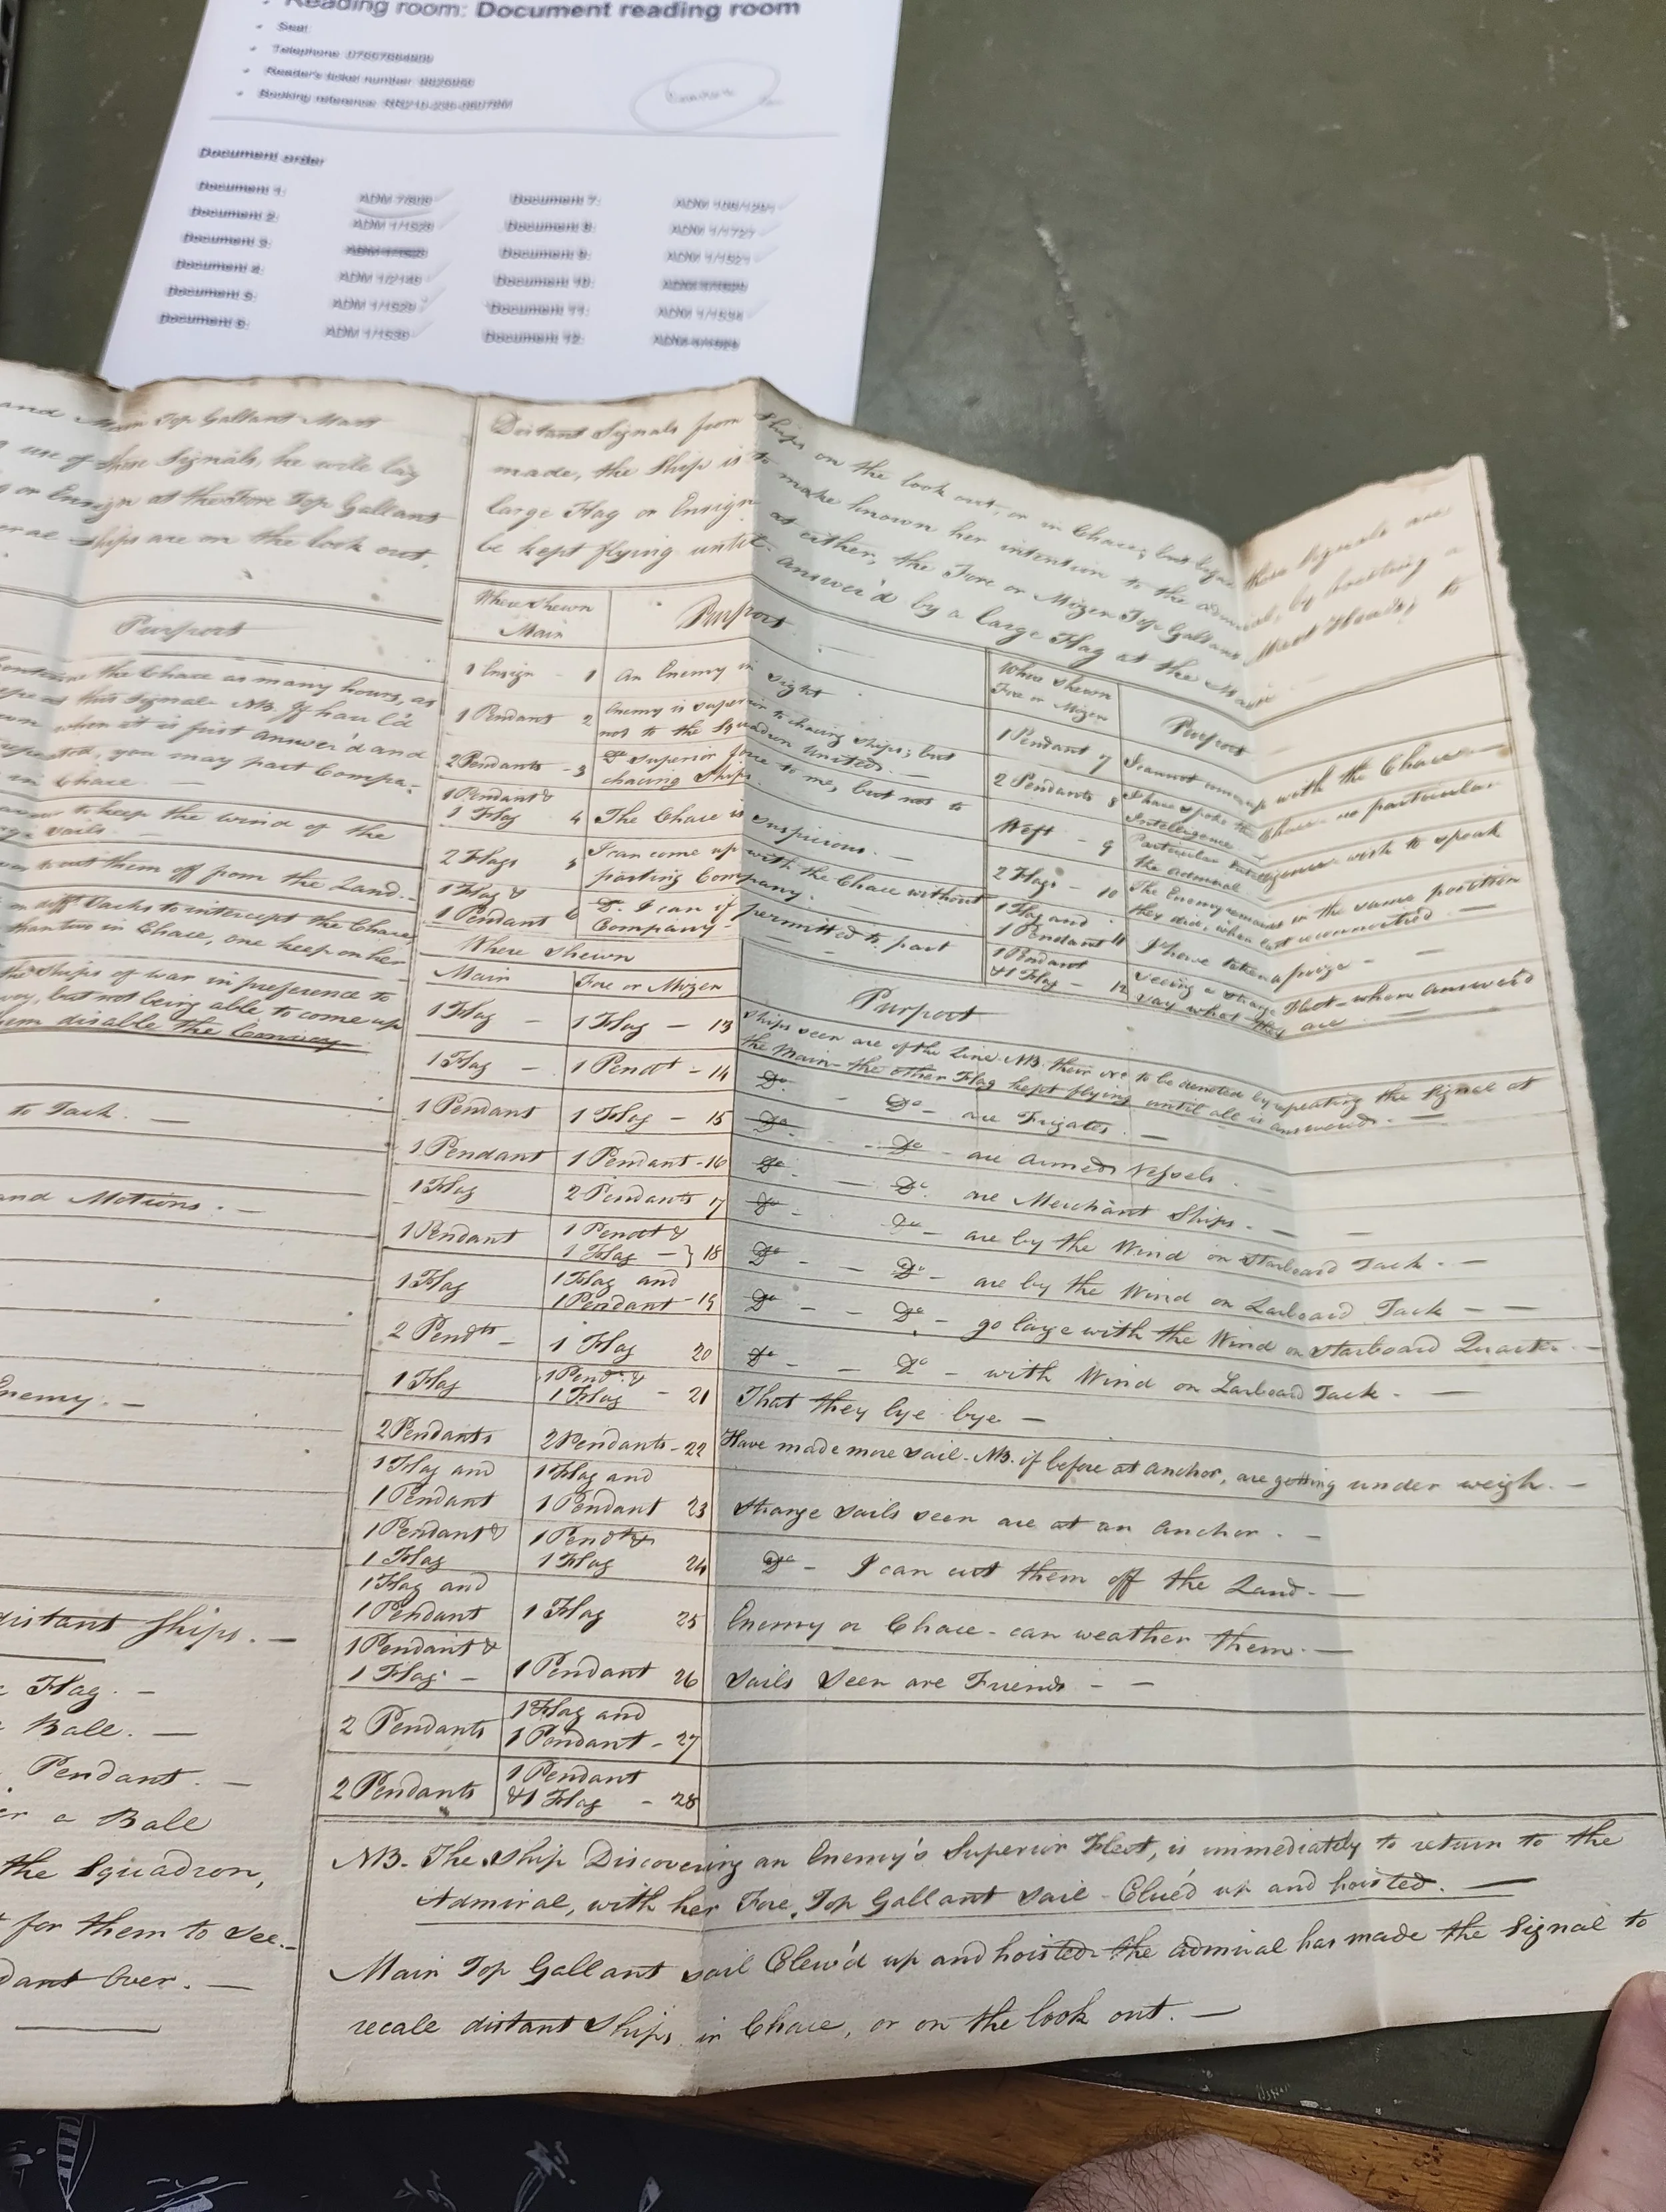 Reading room: Document reading room
Seat:
Telephone:
Reader's ticket number:
Booking reference:
Document order
Document 1: ADM 7/
Document 2: ADM 1/1526
Document 3:
Document 4: ADM 1/2149
Document 5: ADM 1/1529
Document 6: ADM 1/1530
Document 7: ADM
Document 8: ADM 1/1727
Document 9: ADM 1/1521
Document 10:
Document 11: ADM 1/1534
Document 12:
and Main Top Gallant Mast
use of these Signals, he will
or Ensign at the Fore Top Gallant
ships are on the look out,
Purport
the Chace as many hours, as
at this signal NB. If haul'd
when it is first answer'd and
repeated, you may part Compa-
in Chace.
to keep the wind of the
sails. —
to cut them off from the Land. —
on difft. Tacks to intercept the Chace,
than two in Chace, one keep on her
the Ships of war in preference to
but not being able to come up
disable the Convoy
to Tack. —
and Motions. —
Enemy. —
distant Ships. —
Flag. —
Ball. —
Pendant. —
a Ball
the Squadron,
for them to see. —
Over. —
Distant Signals from Ships on the look out, or in Chace; but before these Signals are
made, the Ship is to make known her intention to the Admiral, by hoisting a
large Flag or Ensign at either, the Fore or Mizen Top Gallant Mast Heads; to
be kept flying until answer'd by a large Flag at the Main
Where shewn
Main
Purport
1 Ensign - 1 An Enemy in sight
1 Pendant 2 Enemy is superior to chacing ships; but
not to the Squadron united. —
2 Pendants - 3 Do superior force to me, but not to
chacing Ships.
1 Pendant &
1 Flag 4 The Chace is suspicious. —
2 Flags 5 I can come up with the Chace without
parting Company.
1 Flag &
1 Pendant 6 Do. I can if permitted to part
Company —
Where shewn
Fore or Mizen
Purport
1 Pendant 7 I cannot come up with the Chace —
2 Pendants 8 I have spoke the Chace — no particular
Intelligence —
Weft - 9 Particular Intelligence wish to speak
the Admiral —
2 Flags - 10 The Enemy remains in the same position
they did, when last reconnoitred. —
1 Flag and
1 Pendant 11 I have taken a prize - —
1 Pendant
& 1 Flag - 12 Seeing a strange Fleet — whom answered
say what they are —
Where Shewn
Main Fore or Mizen
Purport
1 Flag — 1 Flag — 13 Ships seen are of the Line. NB. their No. to be denoted by repeating the Signal at
the Main — the other Flag kept flying until all is answered. —
1 Flag — 1 Pendt — 14 Do. - Do — are Frigates. —
1 Pendant 1 Flag — 15 Do — Do — are armed Vessels. —
1 Pendant 1 Pendant - 16 Do. — Do. are Merchant Ships. —
1 Flag 2 Pendants 17 Do. Do — are by the Wind on Starboard Tack. —
1 Pendant 1 Pendt &
1 Flag — } 18 Do - - Do - are by the Wind on Larboard Tack — —
1 Flag 1 Flag and
1 Pendant - 19 Do - - Do - go large with the Wind on Starboard Quarter. —
2 Pendts — 1 Flag 20 Do - - Do — with Wind on Larboard Tack. —
1 Flag 1 Pendt &
1 Flag - 21 That they lye bye —
2 Pendants 2 Pendants - 22 Have made more sail - NB. if before at anchor, are getting under weigh. —
1 Flag and 1 Flag and
1 Pendant 1 Pendant 23 Strange sails seen are at an anchor. —
1 Pendant & 1 Pendt &
1 Flag 1 Flag 24 Do — I can cut them off the Land. —
1 Flag and
1 Pendant 1 Flag 25 Enemy or Chace — can weather them. —
1 Pendant &
1 Flag — 1 Pendant 26 Sails Seen are Friends - —
2 Pendants 1 Flag and
1 Pendant - 27
2 Pendants 1 Pendant
& 1 Flag - 28
NB. The Ship Discovering an Enemy's Superior Fleet, is immediately to return to the
Admiral, with her Fore, Top Gallant Sail — Clue'd up and hoisted. —
Main Top Gallant sail Clew'd up and hoisted — the Admiral has made the Signal to
recale distant Ships in Chace, or on the look out. —